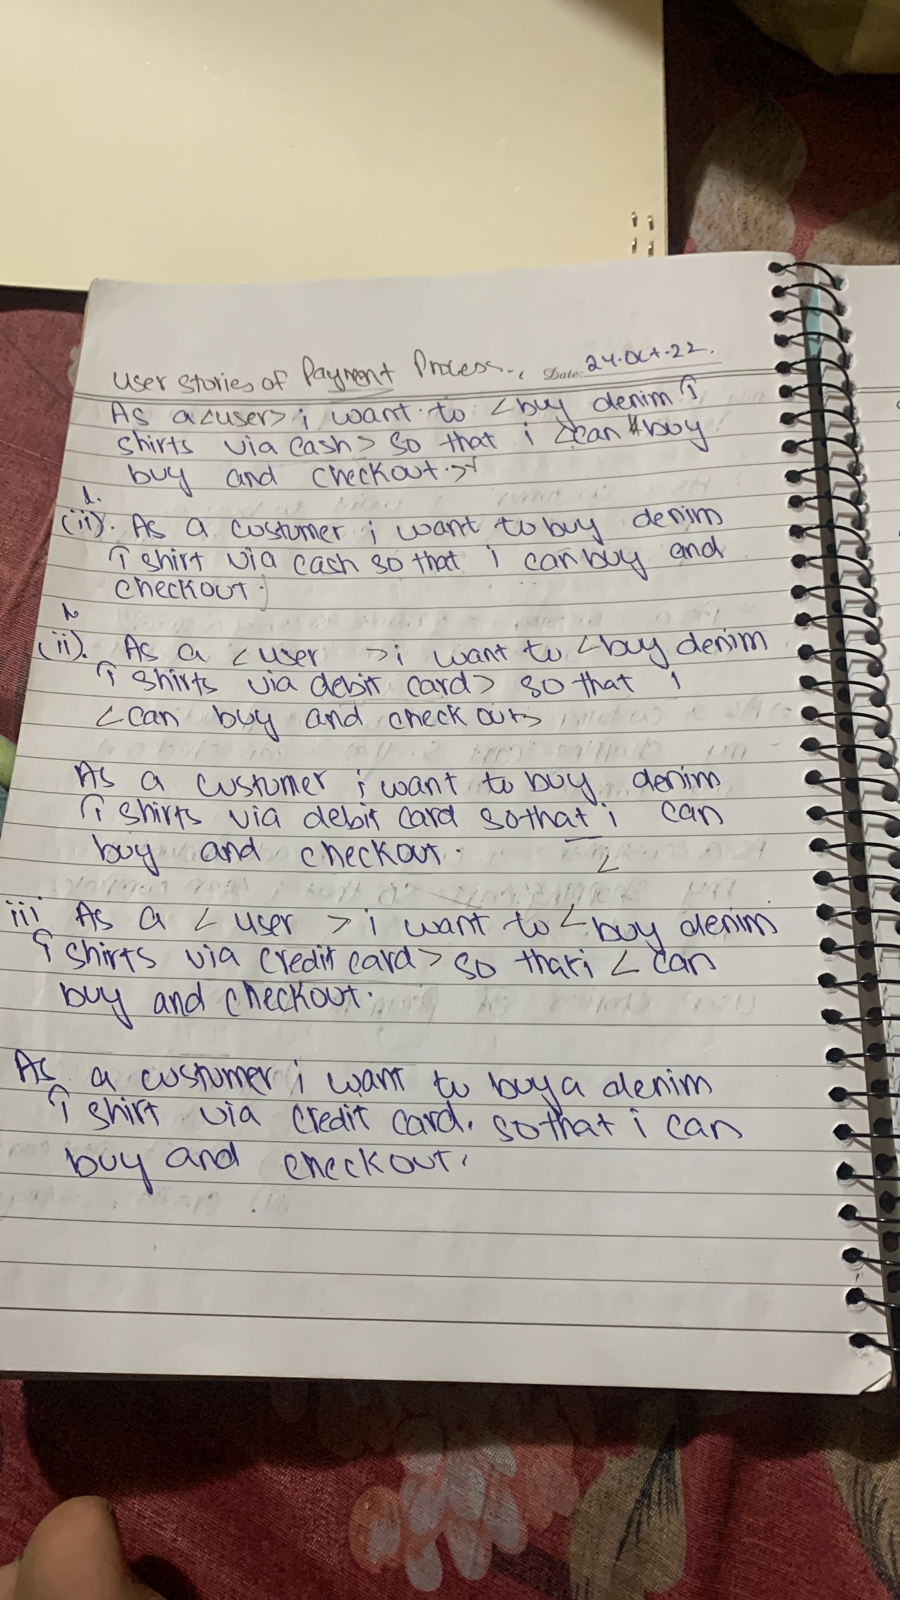 User stories of Payment Process.. Date: 24.Oct.22.
As a <user> i want to <buy denim T
shirts via cash> so that i <can buy
buy and checkout.>
(ii). As a custumer i want to buy denim
T shirt via cash so that i can buy and
checkout.
(ii). As a <user > i want to <buy denim
T shirts via debit card> so that i
<can buy and check out>
As a custumer i want to buy denim
T shirts via debit card so that i can
buy and checkout.
iii As a < user > i want to <buy denim
T shirts via credit card> so that i < can
buy and checkout.
As a custumer i want to buy a denim
T shirt via credit card. so that i can
buy and checkout.